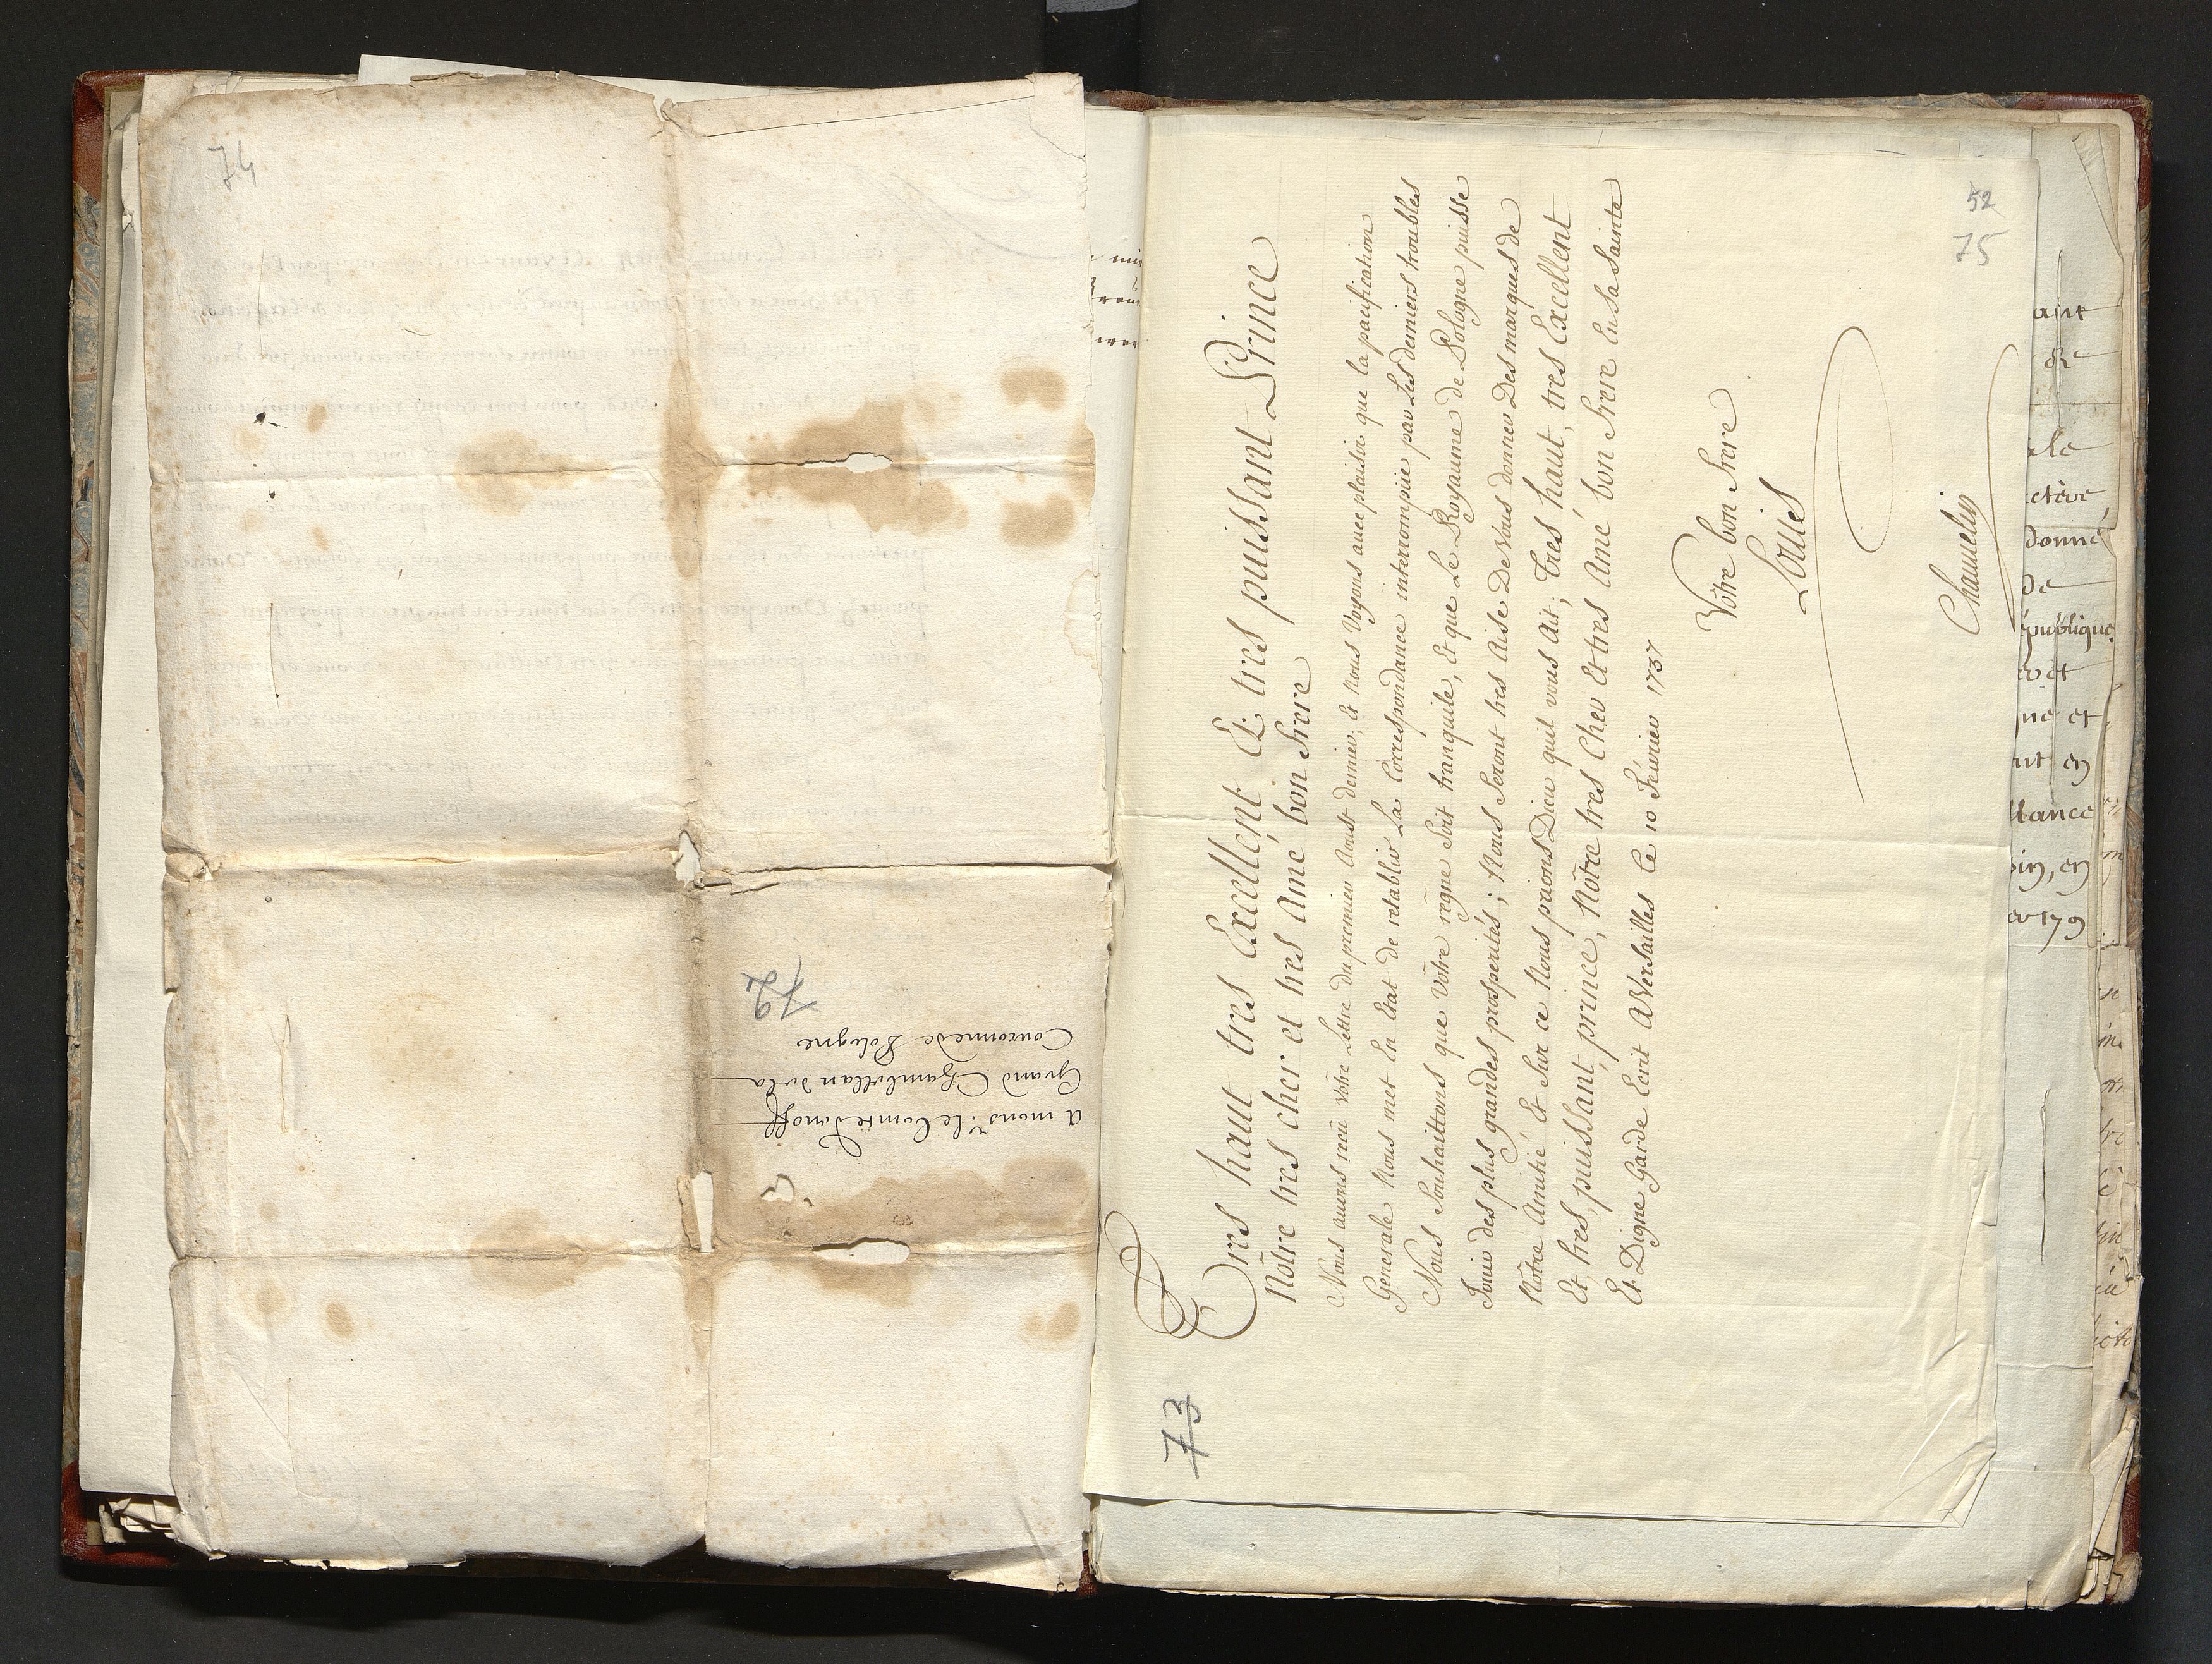 74
72
a monsr. le Comte Donoff
Grand Chambellan de la
Couronne de Pologne
52
75
73
Tres haut tres Excellent Et tres puissant Prince
Nôtre tres cher et tres Amé bon frere
Nous auons recu vôtre Lettre du premier Aoust dernier, et Nous Voyons auec plaisir que la pacification
Generale Nous met En Etat de retablir La Correspondance interrompüe par Les derniers troubles
Nous Souhaittons que Vôtre regne Soit tranquile, Et que Le Royaume de Pologne puisse
Jouir des plus grandes prosperités ; Nous Seront tres Aise De Vous donner Des marques de
Nôtre Amitié Et Sur ce Nous prions Dieu quil vous Ait, Tres haut, tres Excellent
Et tres puissant prince, Nôtre tres Cher Et tres Amé bon frere En Sa Sainte
Et Digne Garde Ecrit A Versailles Le 10 Féurier 1737
Vôtre bon frere
Louis
Chauuelin
ant
de
ale
donné
de
épublique
et
ne et
nt en
llance
in, en
er 179